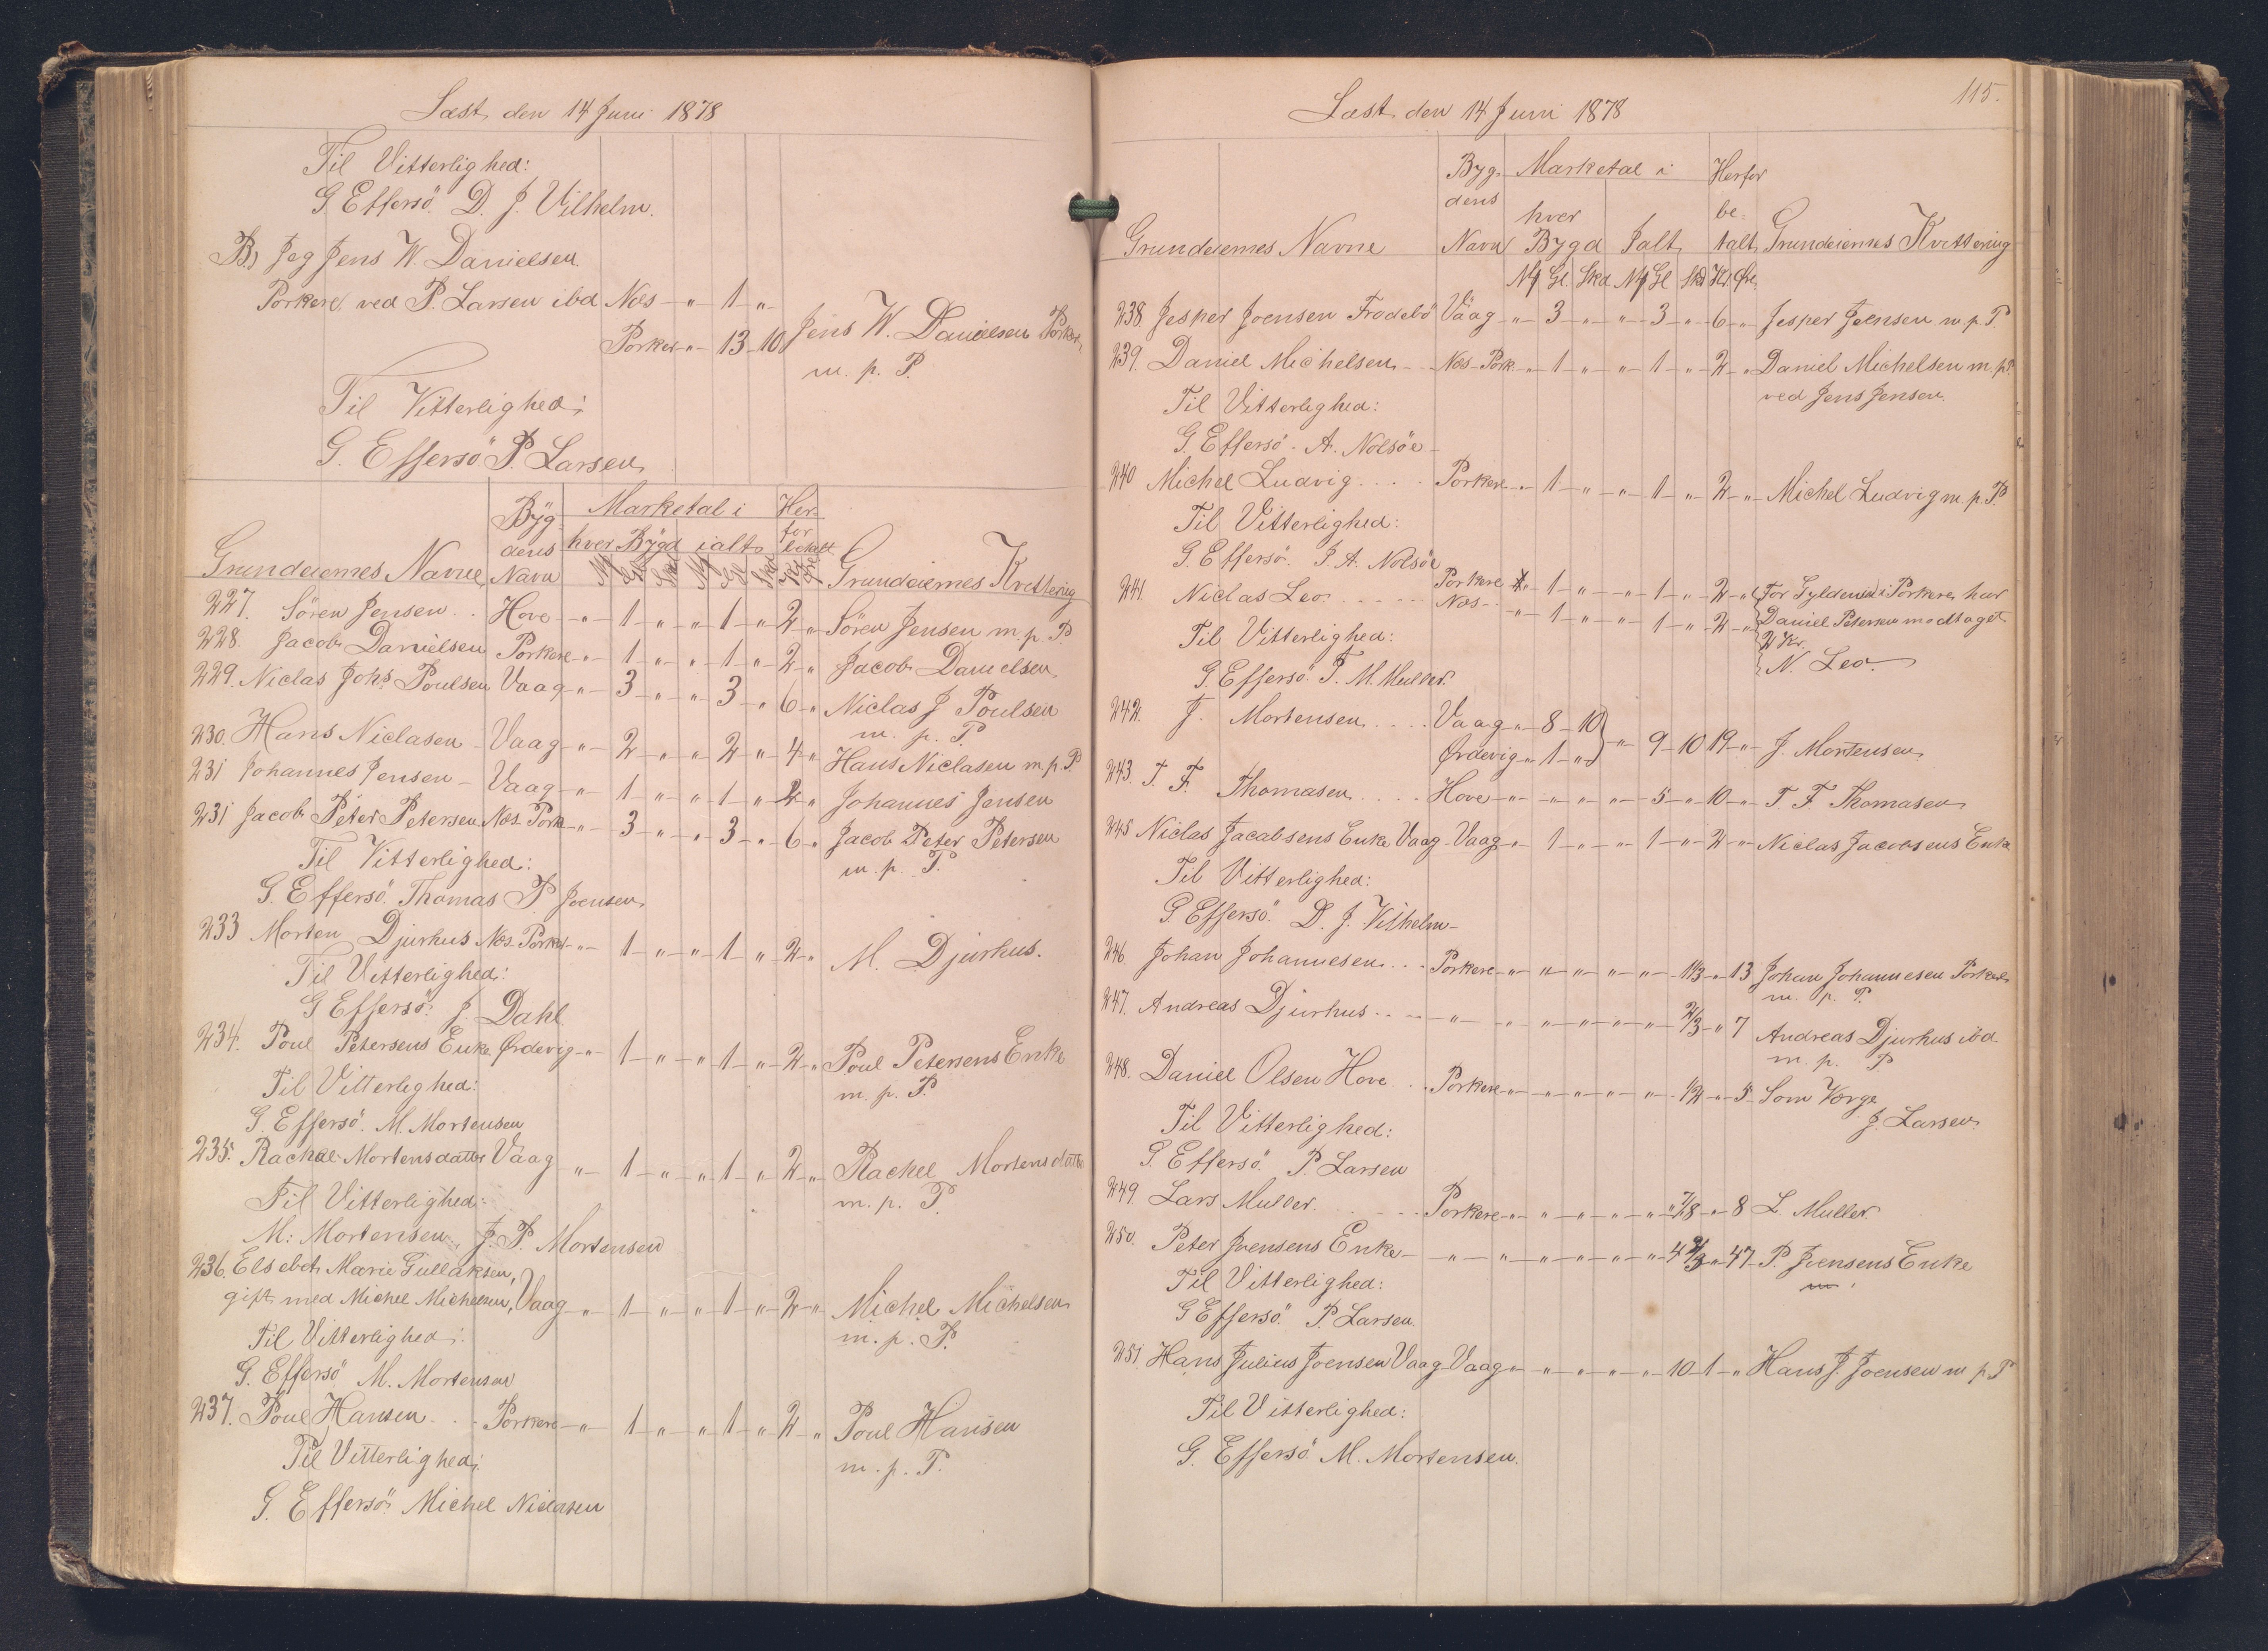 Læst den 14 Juni 1878
Til Vitterlighed:
G. Effersö. D. J. Vilhelm.
B, Jeg Jens W. Danielsen.
Porkere, ved P. Larsen ibd Næs - " - 1 - "
Porkere - " - 13 - 10 Jens W. Danielsen Porkere
m. p. P.
Til Vitterlighed:
G. Effersö P. Larsen
Grundeiernes Navne Bygdens Navn Marketal i hver Bygd ialt Herfor betalt Grundeiernes Kvittering
Mk Gl Skd Mk Gl Skd Kr Øre
227. Sören Jensen . . Hove - " - 1 - " - " - 1 - " - 2 - " Sören Jensen m. p. P.
228. Jacob Danielsen Porkere - " - 1 - " - " - 1 - " - 2 - " Jacob Danielsen
229. Niclas Johs Poulsen Vaag - " - 3 - " - " - 3 - " - 6 - " Niclas J Poulsen
m. p. P.
230. Hans Niclasen - Vaag - " - 2 - " - " - 2 - " - 4 - " Hans Niclasen m. p. P.
231 Johannes Jensen - Vaag - " - 1 - " - " - 1 - " - 2 - " Johannes Jensen
231 Jacob Peter Petersen Næs-Pork - " - 3 - " - " - 3 - " - 6 - " Jacob Peter Petersen
Til Vitterlighed: m. p. P.
G. Effersö. Thomas P Joensen
233 Morten Djurhus Næs-Porker - " - 1 - " - " - 1 - " - 2 - " M. Djurhus.
Til Vitterlighed:
G Effersö: J. Dahl
234. Poul Petersens Enke Ördevig - " - 1 - " - " - 1 - " - 2 - " Poul Petersens Enke
Til Vitterlighed: m. p. P.
G. Effersö. M. Mortensen
235. Rachel Mortensdatter Vaag - " - 1 - " - " - 1 - " - 2 - " Rachel Mortensdatter
Til Vitterlighed: m. p. P.
M: Mortensen, J. P. Mortensen
236. Elsebet Marie Gullaksen,
gift med Michel Michelsen, Vaag - " - 1 - " - " - 1 - " - 2 - " Michel Michelsen
Til Vitterlighed: m. p. P.
G. Effersö M. Mortensen
237. Poul Hansen . . Porkere - " - 1 - " - " - 1 - " - 2 - " Poul Hansen
Til Vitterlighed: m. p. P.
G. Effersö: Michel Niclasen
115.
Læst den 14 Juni 1878
Grundeiernes Navne Bygdens Navn Marketal i hver Bygd Ialt Herfor betalt Grundeiernes Kvittering
Mk Gl. Skd Mk Gl Skd Kr. Øre.
238. Jesper Joensen Frodebö Vaag - " - 3 - " - " - 3 - " - 6 - " Jesper Joensen m. p. P.
239. Daniel Michelsen - - Næs-Pork. - " - 1 - " - " - 1 - " - 2 - " Daniel Michelsen m. p. P.
Til Vitterlighed: ved Jens Jensen.
G. Effersö. A. Nolsöe
240 Michel Ludvig . . . . Porkere - " - 1 - " - " - 1 - " - 2 - " Michel Ludvig m. p. P
Til Vitterlighed:
G. Effersö. J A. Nolsöe
241. Niclas Leo. . . . . Porkere " - 1 - " - " - 1 - " - 2 - " For Gylden i Porkere har
Næs - " - 1 - " - " - 1 - " - 2 - " Daniel Petersen modtaget
Til Vitterlighed: 2 Kr.
G. Effersö. T. M. Muller. N. Leo.
242. J. Mortensen . . . . Vaag - " - 8 - 10
Ördevig - " - 1 - " } " - 9 - 10 19 - " J. Mortensen
243. T. F. Thomasen . . . . Hove - " - " - " - " - 5 - " - 10 - " T F Thomasen
245 Niclas Jacobsens Enke Vaag - Vaag - " - 1 - " - " - 1 - " - 2 - " Niclas Jacobsens Enke
Til Vitterlighed:
G Effersö. D. J. Vilhelm -
246 Johan Johannesen . . . Porkere - " - " - " - " - " - 1 1/3 - " - 13 Johan Johannesen Porkere
m. p. P.
247. Andreas Djurhus . . - " - " - " - " - " - " - 2/3 - " 7 Andreas Djurhus ibd.
m. p. P
248. Daniel Olsen Hove . . Porkere - " - " - " - " - " - 1/2 - " 5 Som Værge
Til Vitterlighed: J. Larsen
G. Effersö. P. Larsen
249 Lars Muller . . . . Porkere - " - " - " - " - " - 7/8 - " - 8 L. Muller
250. Peter Joensens Enke - " - " - " - " - " - " - 4 2/3 - " 47 - P. Joensens Enke
Til Vitterlighed:
G Effersö. P. Larsen.
251. Hans Julius Joensen Vaag Vaag - " - " - " - " - " - 10 - 1 - " Hans J. Joensen m p P
Til Vitterlighed:
G. Effersö. M. Mortensen.